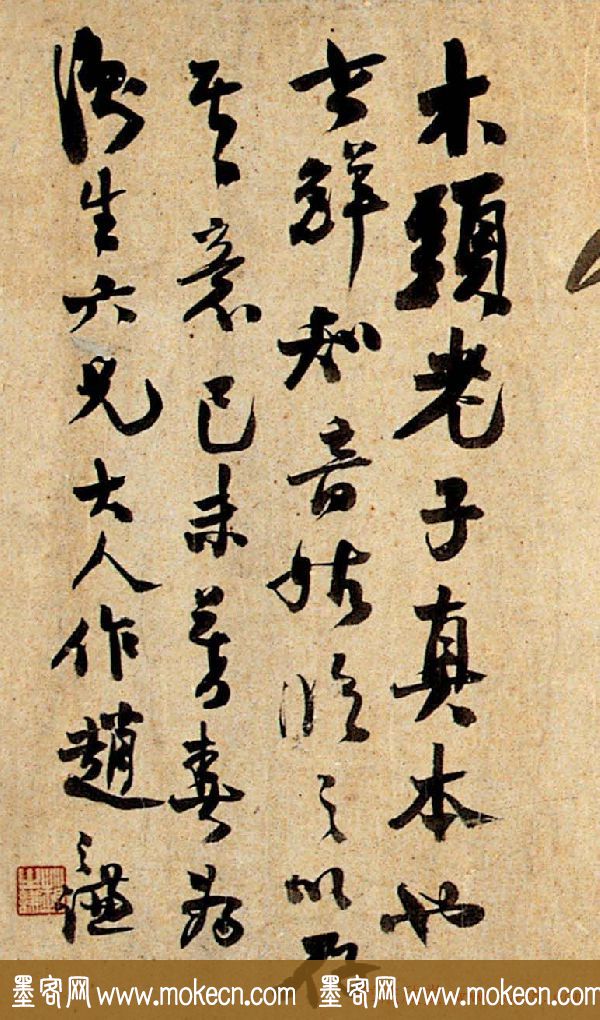 木頭老子真本也
世鮮知音姑臨之以存
其意己未暮春為
六兄大人作趙之謙
墨客网 www.mokecn.com 墨客网 www.mokecn.com